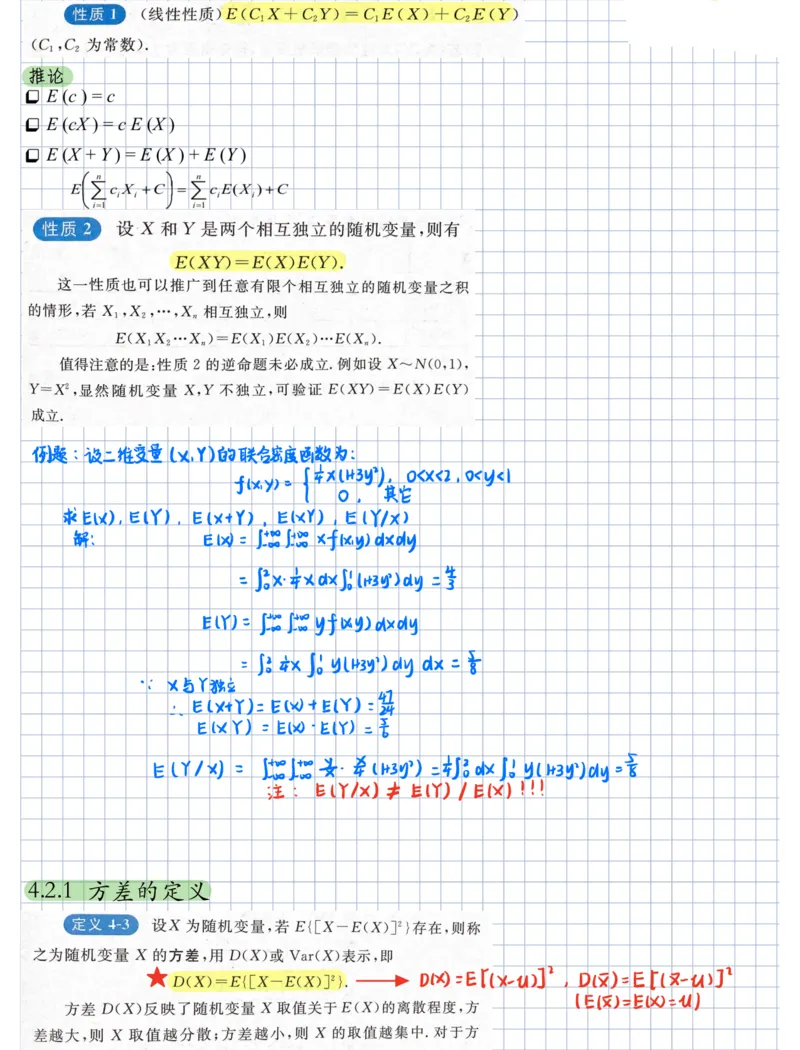 性质 1 (线性性质) E(C₁X+C₂Y)=C₁E(X)+C₂E(Y)
(C₁,C₂ 为常数).
推论
❑ E(c)=c
❑ E(cX)=cE(X)
❑ E(X+Y)=E(X)+E(Y)
E(∑ᵢ₌₁ⁿ cᵢXᵢ+C)=∑ᵢ₌₁ⁿ cᵢE(Xᵢ)+C
性质 2 设 X 和 Y 是两个相互独立的随机变量,则有
E(XY)=E(X)E(Y).
这一性质也可以推广到任意有限个相互独立的随机变量之积
的情形,若 X₁,X₂,⋯,Xₙ 相互独立,则
E(X₁X₂⋯Xₙ)=E(X₁)E(X₂)⋯E(Xₙ).
值得注意的是:性质 2 的逆命题未必成立. 例如设 X~N(0,1),
Y=X²,显然随机变量 X,Y 不独立,可验证 E(XY)=E(X)E(Y)
成立.
例题:设二维变量(X,Y)的联合密度函数为:
f(x,y)={ 1/4 x(1+3y²), 0<x<2, 0<y<1
0, 其它
求E(X), E(Y), E(X+Y), E(XY), E(Y/X)
解: E(X)=∫₋∞⁺∞∫₋∞⁺∞ xf(x,y)dxdy
=∫₀²x·1/4 x dx∫₀¹(1+3y²)dy=4/3
E(Y)=∫₋∞⁺∞∫₋∞⁺∞ yf(x,y)dxdy
=∫₀² 1/4 x ∫₀¹ y(1+3y²)dy dx=5/8
∵ X与Y独立
∴ E(X+Y)=E(X)+E(Y)=47/24
E(XY)=E(X)·E(Y)=5/6
E(Y/X)=∫₋∞⁺∞∫₋∞⁺∞ y/x·x/4(1+3y²)=1/4∫₀²dx∫₀¹y(1+3y²)dy=5/8
注: E(Y/X)≠E(Y)/E(X)!!!
4.2.1 方差的定义
定义 4-3 设X 为随机变量,若 E{[X−E(X)]²}存在,则称
之为随机变量 X 的方差,用 D(X)或 Var(X)表示,即
★ D(X)=E{[X−E(X)]²}. → D(X)=E[(X-u)]², D(X̄)=E[(X̄-u)]²
(E(X̄)=E(X)=u)
方差 D(X)反映了随机变量 X 取值关于 E(X)的离散程度,方
差越大,则 X 取值越分散;方差越小,则 X 的取值越集中. 对于方